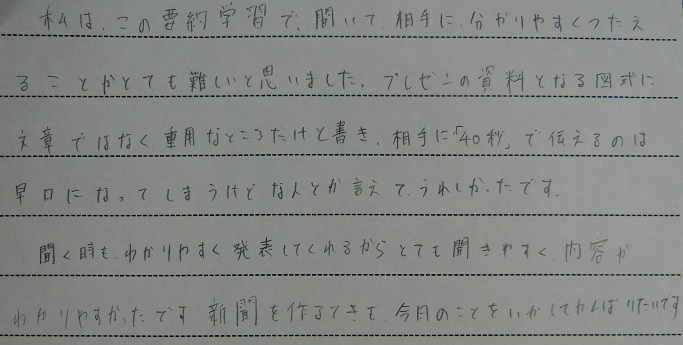 私は、この要約学習で、聞いて、相手に、分かりやすくつたえ
ることがとても難しいと思いました。プレゼンの資料となる図式に
文章ではなく重用なところだけと書き、相手に「40秒」で伝えるのは
早口になってしまうけどなんとか言えて、うれしかったです。
聞く時も、わかりやすく発表してくれるからとても聞きやすく、内容が
わかりやすかったです。新聞を作るときも、今日のことをいかしてがんばりたいです